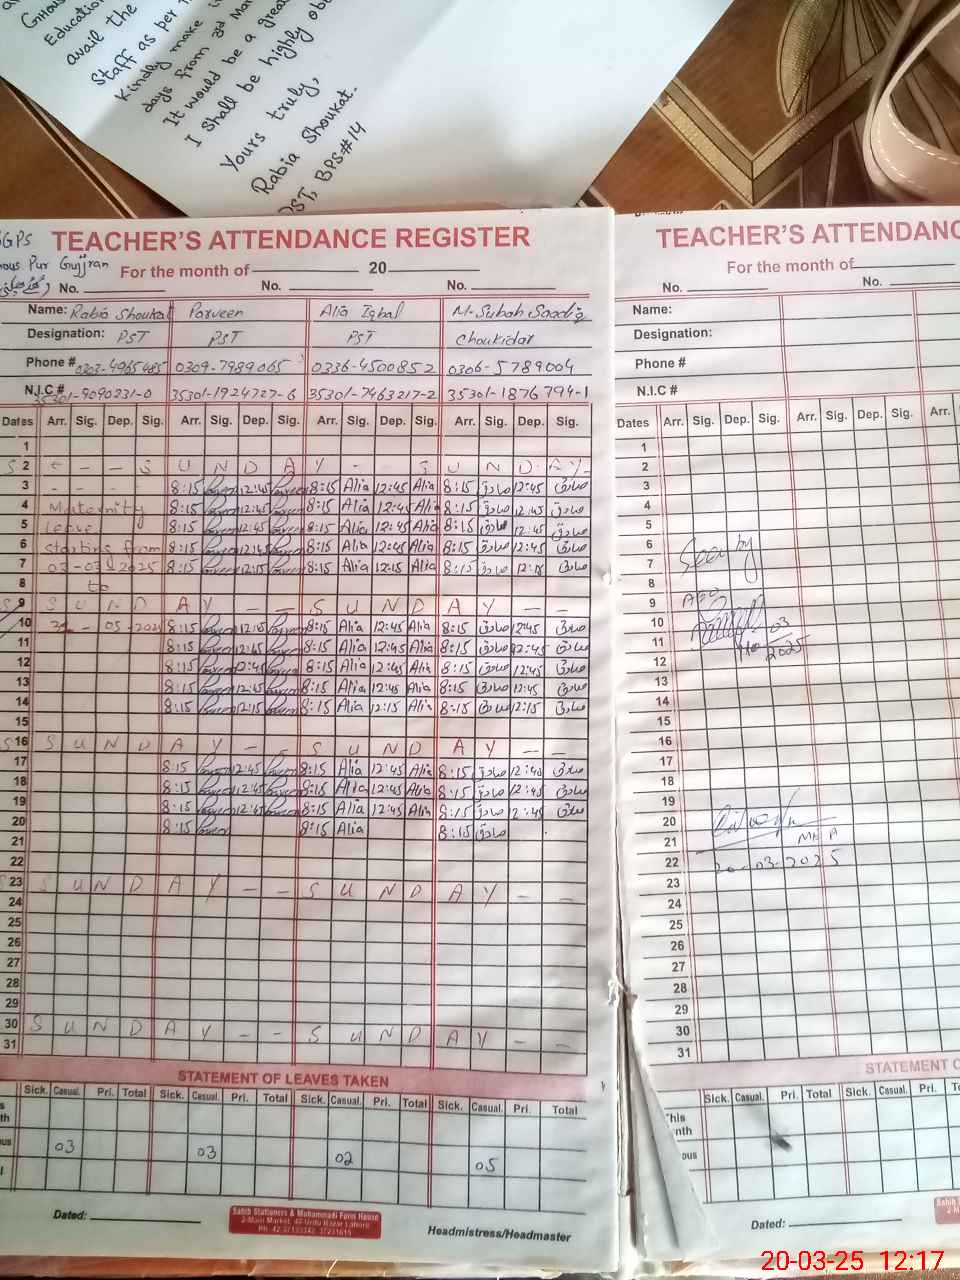 Education
avail the
Staff as per
Kindly make
days from 3d Mar
It would be a great
I shall be highly
Yours truly,
Rabia Shoukat.
PST, BPS#14
GGPS
TEACHER'S ATTENDANCE REGISTER
Pur Gujjran
For the month of 20
No. No. No.
Name: Rabia Shoukat Parveen Alia Iqbal M-Subah Saadiq
Designation: PST PST PST Choukidar
Phone # 0303-4965485 0309-7989065 0336-4500852 0306-5789004
N.I.C # 35301-9090231-0 35301-1924727-6 35301-7463217-2 35301-1876794-1
Dates Arr. Sig. Dep. Sig. Arr. Sig. Dep. Sig. Arr. Sig. Dep. Sig. Arr. Sig. Dep. Sig.
1
2 - - S U N D A Y - - S U N D A Y -
3 - - - - 8:15 12:45 8:15 Alia 12:45 Alia 8:15 صادق 12:45 صادق
4 Maternity 8:15 12:45 8:15 Alia 12:45 Alia 8:15 صادق 12:45 صادق
5 Leave 8:15 12:45 8:15 Alia 12:45 Alia 8:15 صادق 12:45 صادق
6 starting from 8:15 12:45 8:15 Alia 12:45 Alia 8:15 صادق 12:45 صادق
7 03-03-2025 8:15 12:15 8:15 Alia 12:15 Alia 8:15 صادق 12:15 صادق
8 to
9 S U N D A Y - - S U N D A Y - -
10 31 - 05 - 8:15 12:45 8:15 Alia 12:45 Alia 8:15 صادق 12:45 صادق
11 8:15 12:45 8:15 Alia 12:45 Alia 8:15 صادق 12:45 صادق
12 8:15 12:45 8:15 Alia 12:45 Alia 8:15 صادق 12:45 صادق
13 8:15 12:45 8:15 Alia 12:45 Alia 8:15 صادق 12:45 صادق
14 8:15 12:15 8:15 Alia 12:15 Alia 8:15 صادق 12:15 صادق
15
16 S U N D A Y - - S U N D A Y - -
17 8:15 12:45 8:15 Alia 12:45 Alia 8:15 صادق 12:45 صادق
18 8:15 12:45 8:15 Alia 12:45 Alia 8:15 صادق 12:45 صادق
19 8:15 12:45 8:15 Alia 12:45 Alia 8:15 صادق 12:45 صادق
20 8:15 8:15 Alia 8:15 صادق
21
22
23 S U N D A Y - - S U N D A Y - -
24
25
26
27
28
29
30 S U N D A Y - - S U N D A Y - -
31
STATEMENT OF LEAVES TAKEN
Sick. Casual. Pri. Total Sick. Casual. Pri. Total Sick. Casual. Pri. Total Sick. Casual. Pri. Total
03 03 02 05
Dated:
Sahib Stationers & Muhammadi Form House
2-Main Market, 40-Urdu Bazar Lahore
Headmistress/Headmaster
TEACHER'S ATTENDANC
For the month of
No. No.
Name:
Designation:
Phone #
N.I.C #
Dates Arr. Sig. Dep. Sig. Arr. Sig. Dep. Sig. Arr.
1
2
3
4
5
6 Seen by
7
8
9 AEO
10 03
11 2025
12
13
14
15
16
17
18
19
20
21 MEA
22 20-03-2025
23
24
25
26
27
28
29
30
31
STATEMENT O
Sick. Casual. Pri. Total Sick. Casual. Pri. Total
This
nth
ous
Dated:
20-03-25 12:17